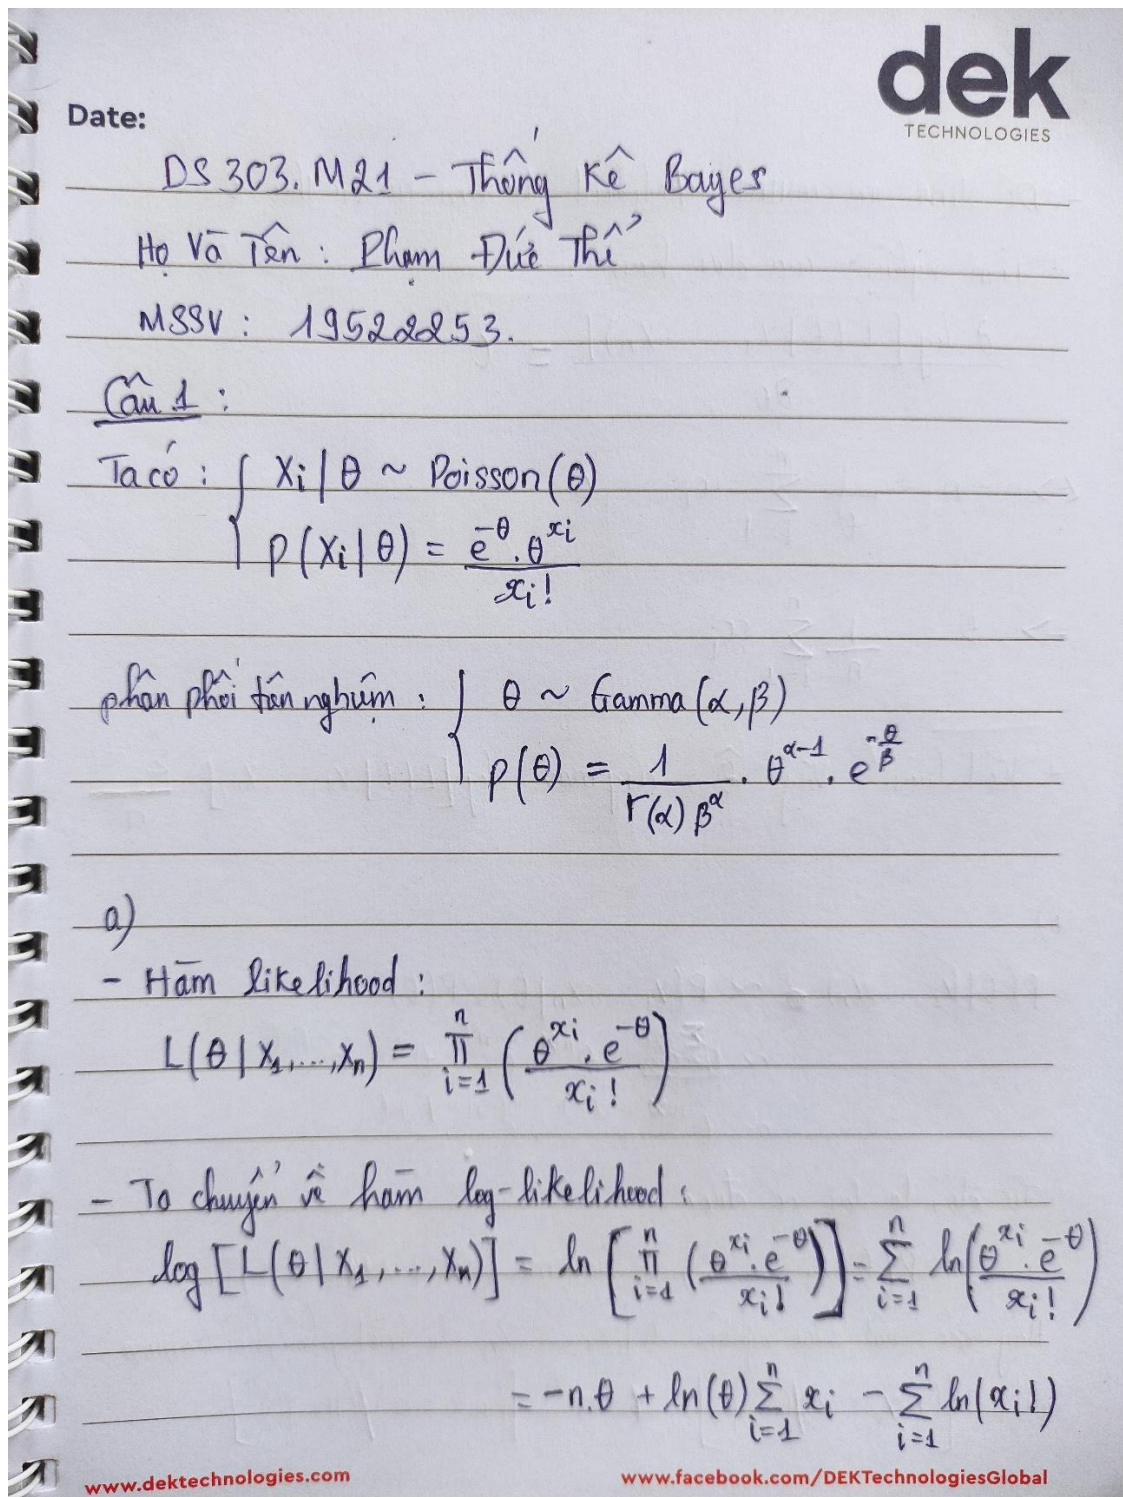 dek
TECHNOLOGIES
Date:
DS303.M21 - Thống Kê Bayes
Họ Và Tên : Phạm Đức Thể
MSSV : 19522253.
Câu 1 :
Ta có : { Xi | θ ~ Poisson(θ)
p(Xi | θ) = e^{-θ}.θ^{xi} / xi!
phân phối tiên nghiệm : { θ ~ Gamma(α,β)
p(θ) = 1 / Γ(α) β^α . θ^{α-1} . e^{-θ/β}
a)
- Hàm likelihood :
L(θ | X1,...,Xn) = ∏_{i=1}^{n} ( θ^{xi} . e^{-θ} / xi ! )
- Ta chuyển về hàm log-likelihood :
log [L(θ | X1,...,Xn)] = ln [ ∏_{i=1}^{n} ( θ^{xi}.e^{-θ} / xi! ) ] = ∑_{i=1}^{n} ln( θ^{xi}.e^{-θ} / xi! )
= -n.θ + ln(θ) ∑_{i=1}^{n} xi - ∑_{i=1}^{n} ln(xi!)
www.dektechnologies.com www.facebook.com/DEKTechnologiesGlobal